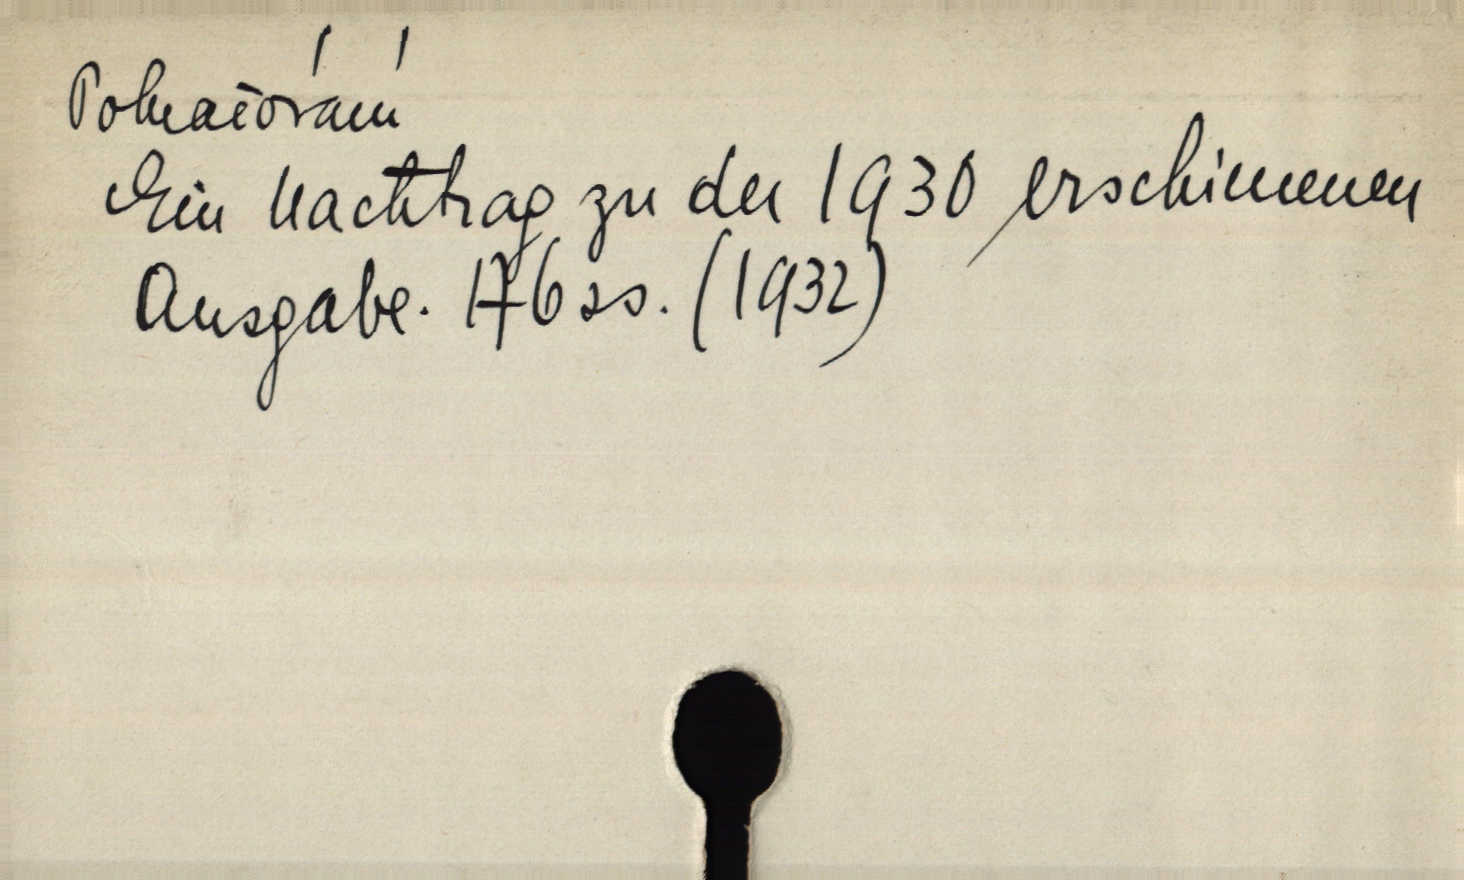 Pokračování
Ein Nachtrag zu der 1930 erschienenen
Ausgabe. 176 ss. (1932)